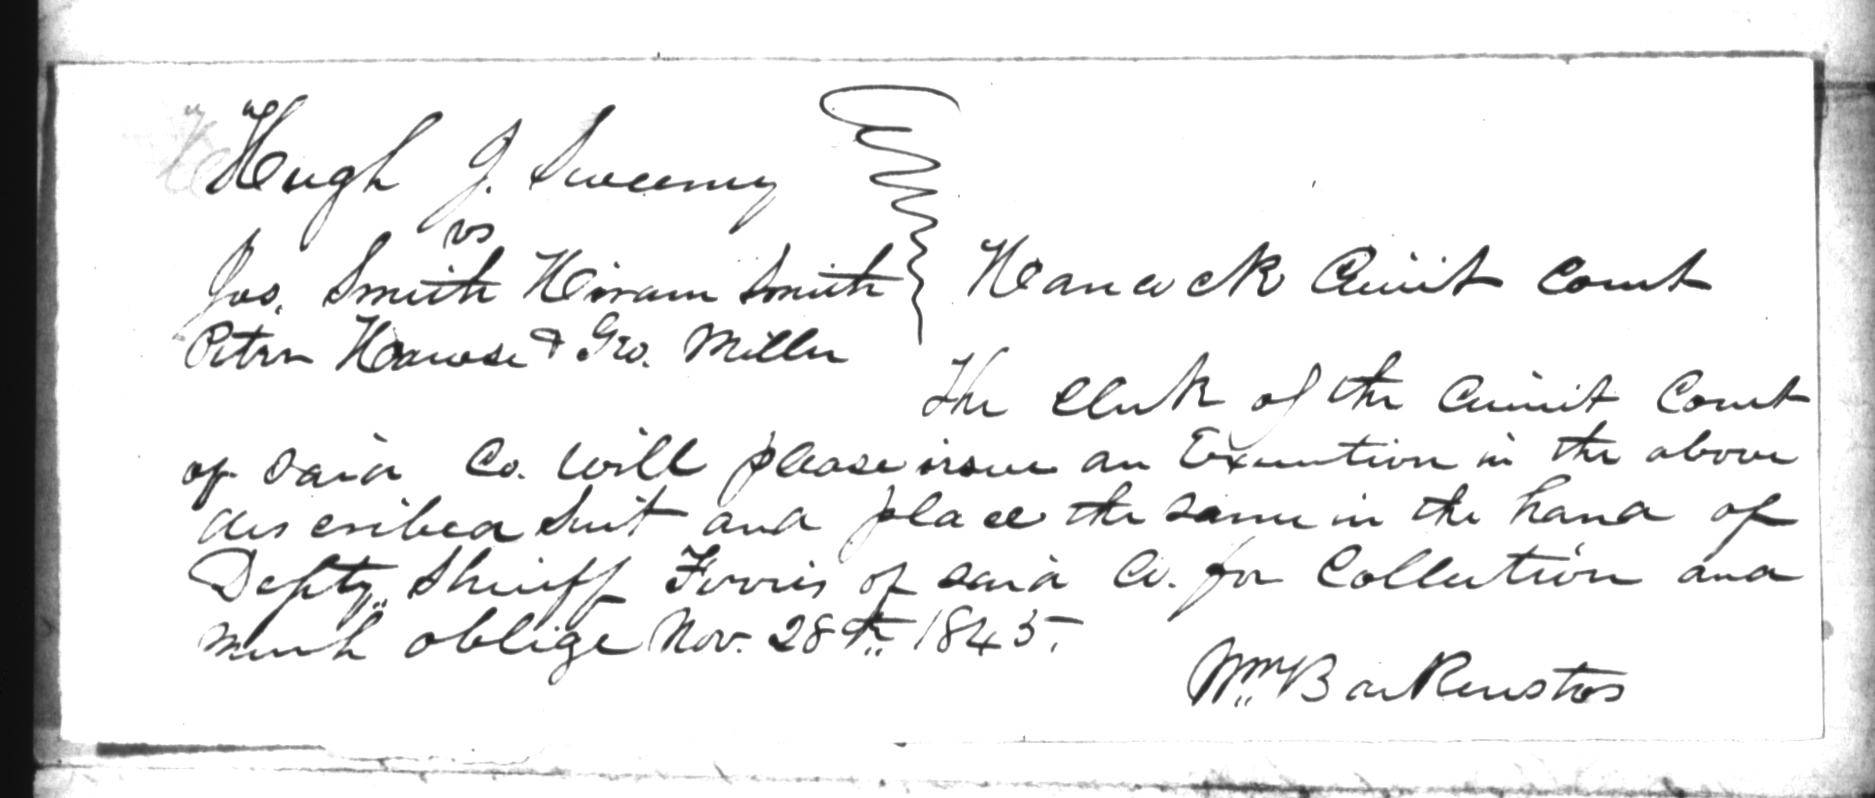 Hugh J. Sweeny
vs
Jos. Smith Hiram Smith
Peter Hawse & Geo. Miller
Hancock Circuit Court
The Clerk of the Circuit Court
of said Co. will please issue an Execution in the above
described suit and place the same in the hand of
Depty. Sheriff Ferris of said Co. for Collection and
much oblige Nov. 28th. 1845.
Wm. Backenstos